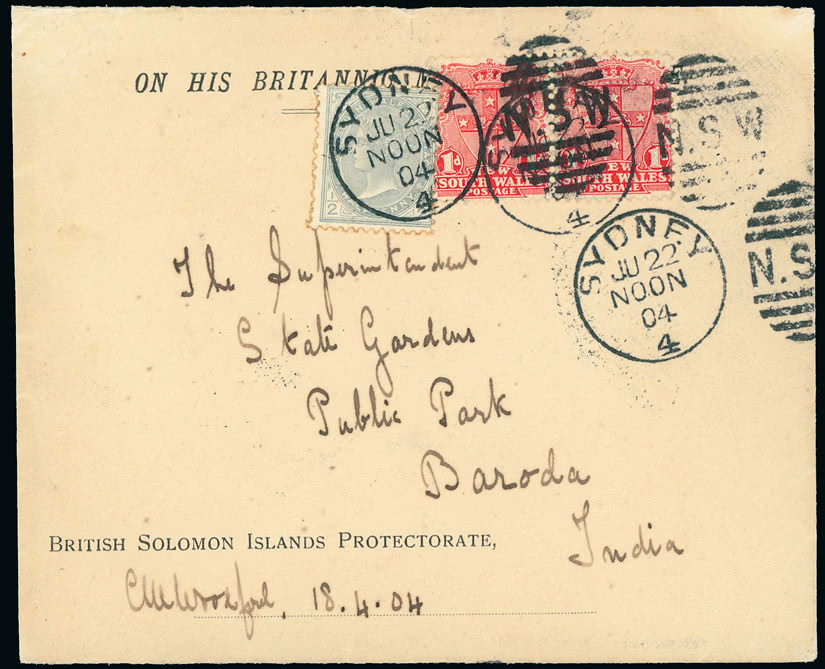 ON HIS BRITANNIC M
SYDNEY
JU 22
NOON
04
4
N.S.W
N.S.W
1d
SOUTH WALES
POSTAGE
NEW
SOUTH WALES
POSTAGE
1/2
PENNY
SYDNEY
JU 22
NOON
04
4
N.S
The Superintendent
State Gardens
Public Park
Baroda
India
BRITISH SOLOMON ISLANDS PROTECTORATE,
CMWoodford, 18.4.04